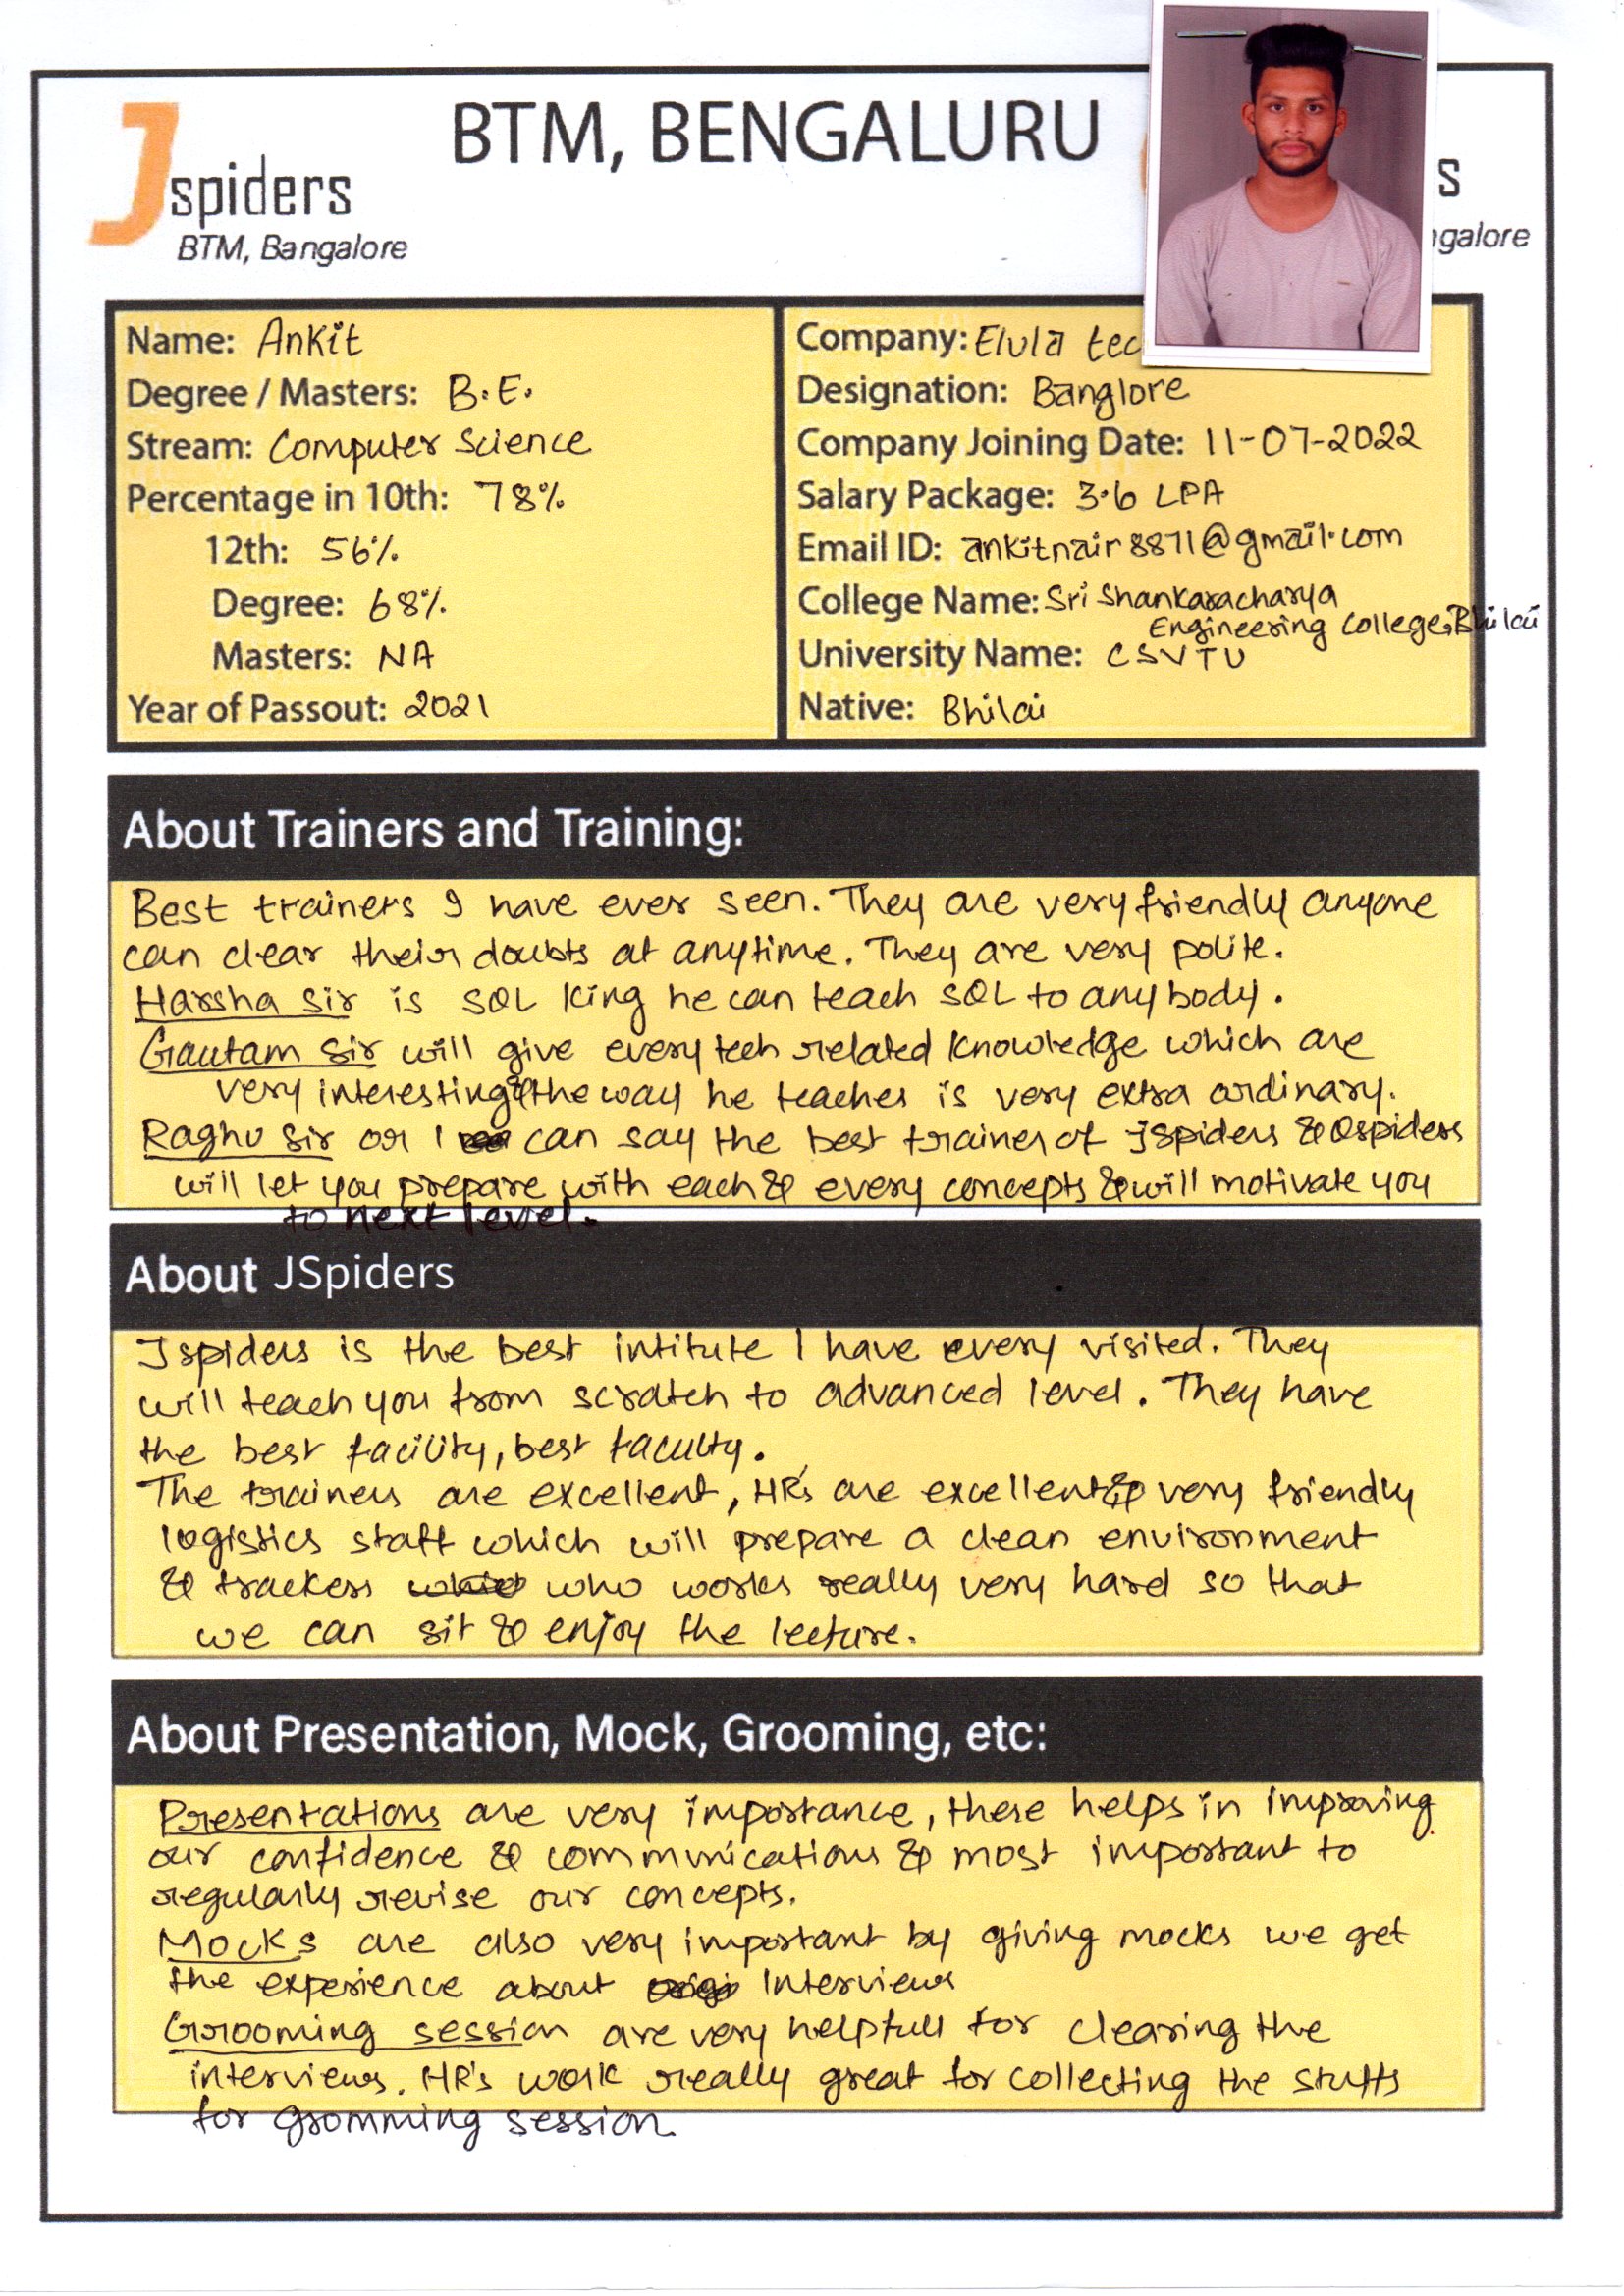 BTM, BENGALURU
Jspiders
BTM, Bangalore
s
galore
Name: Ankit
Degree / Masters: B.E.
Stream: Computer Science
Percentage in 10th: 78%
12th: 56%
Degree: 68%
Masters: NA
Year of Passout: 2021
Company: Elula tec
Designation: Banglore
Company Joining Date: 11-07-2022
Salary Package: 3.6 LPA
Email ID: ankitnair8871@gmail.com
College Name: Sri Shankaracharya
Engineering College, Bhilai
University Name: CSVTU
Native: Bhilai
About Trainers and Training:
Best trainers I have ever seen. They are very friendly anyone
can clear their doubts at anytime. They are very polite.
Harsha Sir is SQL King he can teach SQL to anybody.
Gautam Sir will give every tech related knowledge which are
very interesting & the way he teaches is very extra ordinary.
Raghu Sir or I can say the best trainer of Jspiders & Qspiders
will let you prepare with each & every concepts & will motivate you
to next level.
About JSpiders
Jspiders is the best intitute I have every visited. They
will teach you from scratch to advanced level. They have
the best facility, best faculty.
The trainers are excellent, HR's are excellent & very friendly
logistics staff which will prepare a clean environment
& trackers who works really very hard so that
we can sit & enjoy the lecture.
About Presentation, Mock, Grooming, etc:
Presentations are very importance, these helps in improving
our confidence & communications & most important to
regularly revise our concepts.
Mocks are also very important by giving mocks we get
the experience about Interviews
Grooming session are very helpfull for clearing the
interviews. HR's work really great for collecting the stuffs
for gromming session.